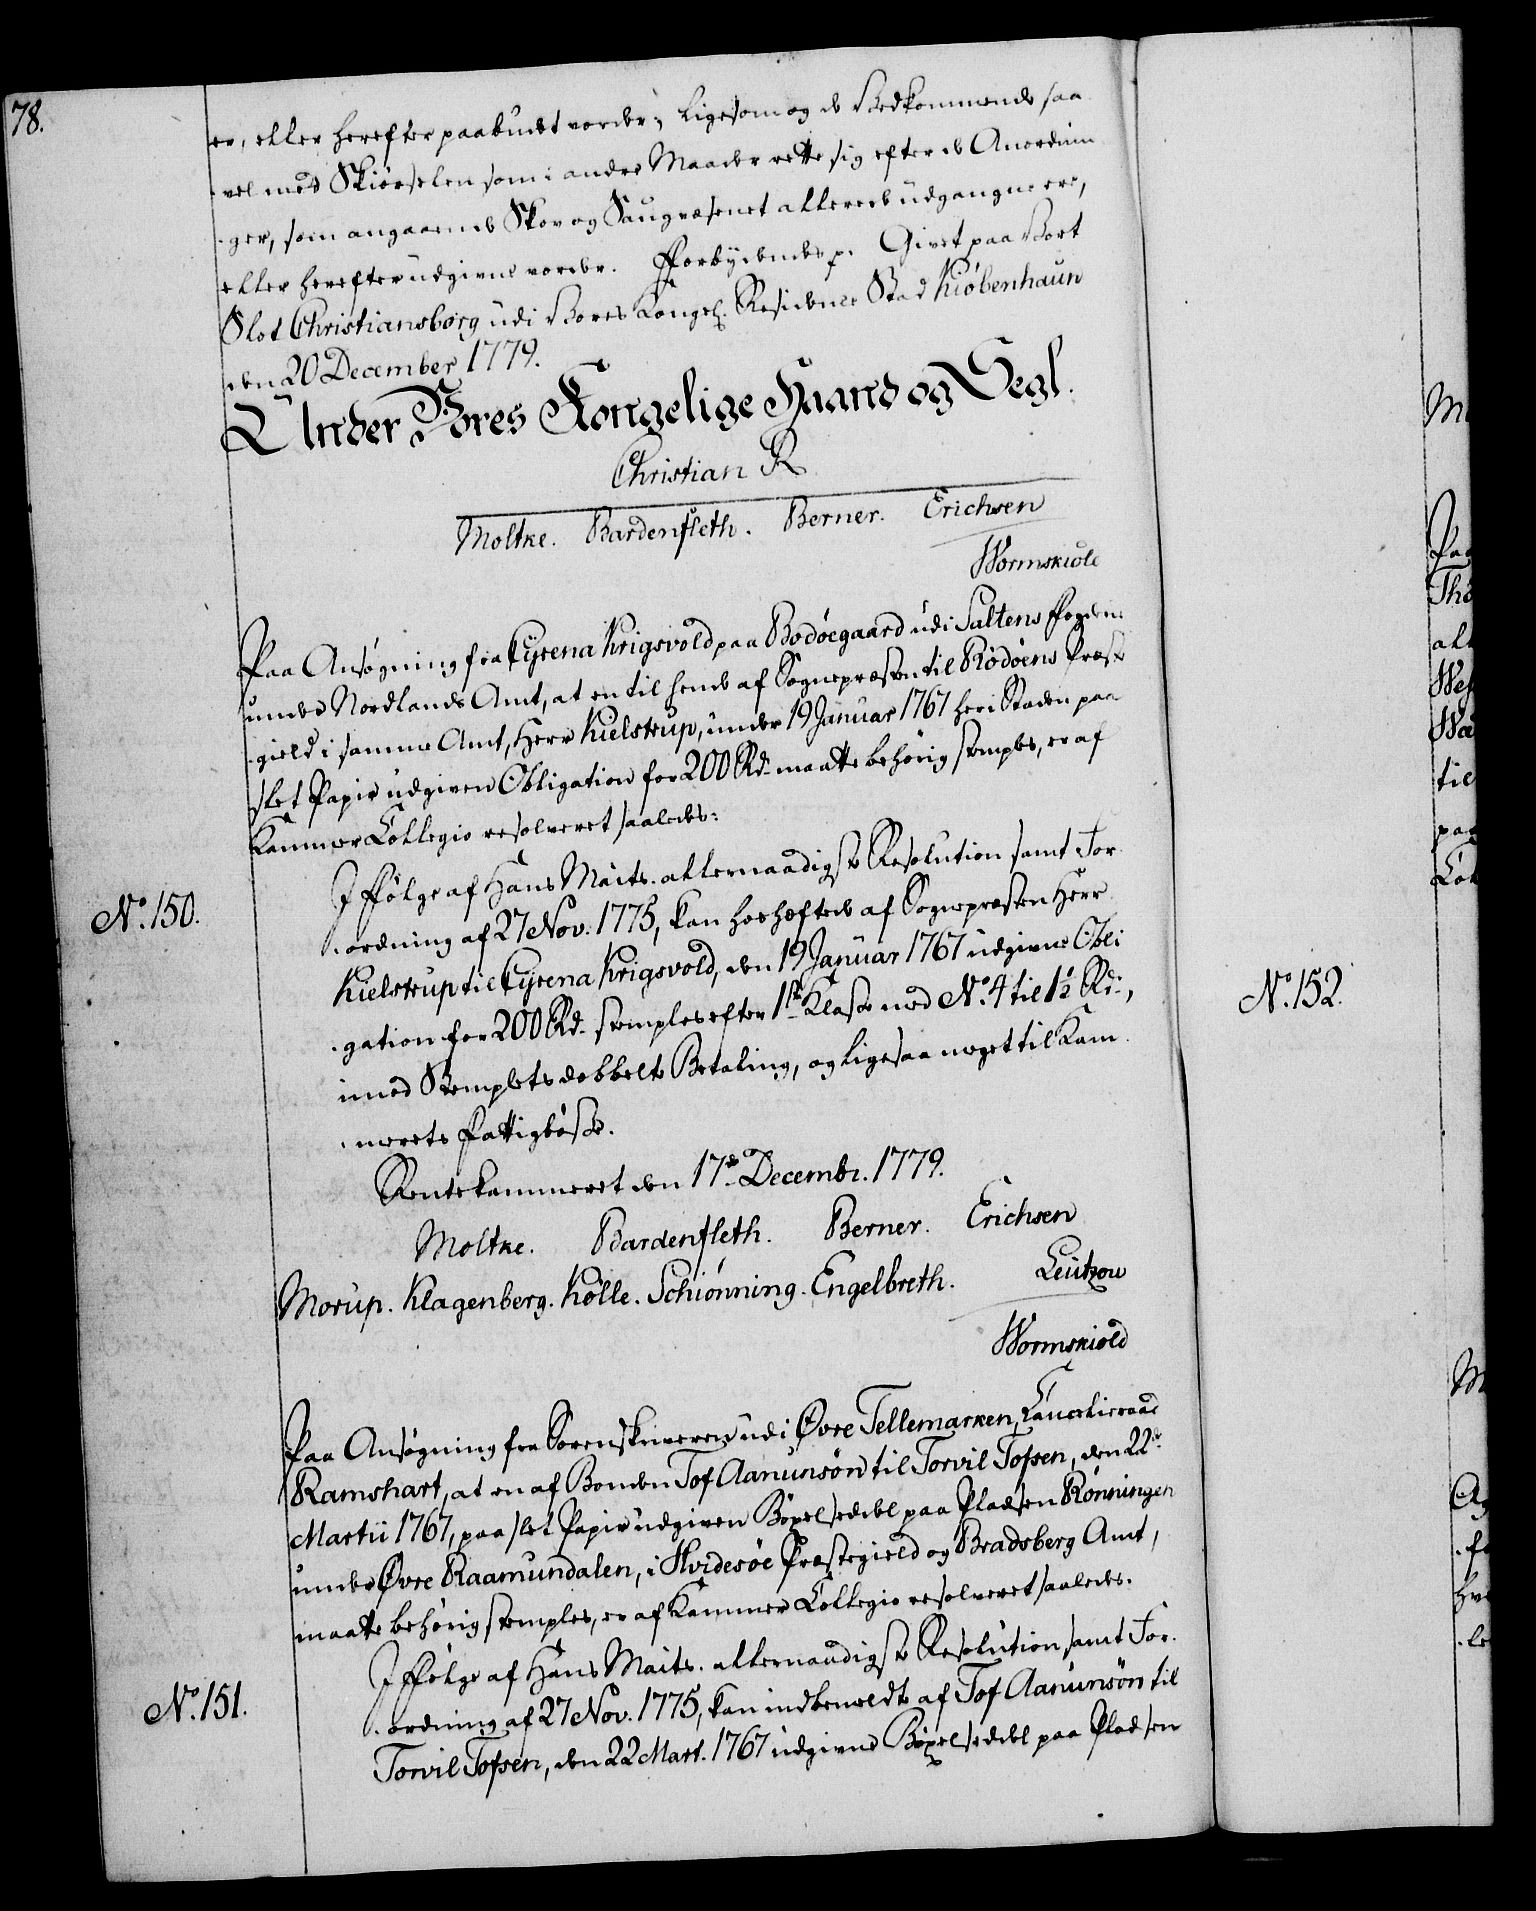 78.
er, eller herefter paabudet vorder; ligesom og de Vedkommende saa
vel med Skiørselen som i andre Maader rette sig efter de Anordnin
ger, som angaaende Skov og Saugvæsenet allerede udgangne ere,
eller herefter udgivne vorder. Forbydendes p. Givet paa Vort
Slot Christiansborg udi Vores Kongel. Residence Stad Kiøbenhaun
den 20 December 1779.
Under Vores Kongelige Haand og Segl.
Christian R
Moltke. Bardenfleth. Berner. Erichsen
Wormskiold
Paa Ansøgning fra Cyrena Krigsvold paa Bodøegaard udi Saltens Fogderie
under Nordlands Amt, at en til hende af Sognepræsten til Rødøens Præste
gield i samme Amt, Herr Kielstrup, under 19 Januar 1767 her i Staden paa
slet Papir udgiven Obligation for 200 Rd. maatte behørig stemples, er af
Kammer Collegio resolveret saaledes:
No. 150.
I Følge af Hans Maits. allernaadigste Resolution samt For
ordning af 27 Nov. 1775, kan hoshæftede af Sognepræsten Herr
Kielstrup til Cyrena Krigsvold, den 19 Januar 1767 udgivne Obli
gation for 200 Rd. stemples efter 1ste Klasse med No. 4 til 1½ Rd.,
imod Stemplets dobbelte Betaling, og ligesaa meget til Kam
merets Fattigbøsse.
Rentekammeret den 17de Decembr. 1779.
Moltke. Bardenfleth. Berner. Erichsen
Morup. Klagenberg. Kølle. Schiønning. Engelbreth. Leützow
Wormskiold
Paa Ansøgning fra Sorenskriveren udi Øvre Tellemarken, Cancelieraad
Ramshart, at en af Bonden Tof Aanunsøn til Torvil Tofsen, den 22de
Martii 1767, paa slet Papir udgiven Bøxelseddel paa Pladsen Rønningen
under Øvre Raamundalen, i Hvidesøe Præstegield og Bradsberg Amt,
maatte behørig stemples, er af Kammer Collegio resolveret saaledes.
No. 151.
I Følge af Hans Maits. allernaadigste Resolution samt For
ordning af 27 Nov. 1775, kan indbemeldte af Tof Aanunsøn til
Torvil Tofsen, den 22 Mart. 1767 udgivne Bøxelseddel paa Pladsen
No. 152.